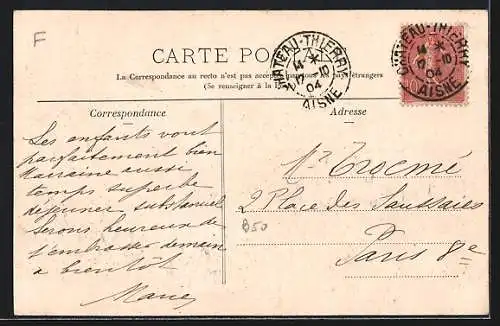 F
CARTE PO
La Correspondance au recto n'est pas accep par tous les pays étrangers
(Se renseigner à la
CHATEAU-THIERRY
14 *
17 10
04
AISNE
CHATEAU-THIERRY
14 *
10
04
AISNE
Correspondance
Adresse
Les enfants vont
parfaitement bien
Marraine aussi
temps superbe
déjeuner substantiel
Serons heureux de
t'embrasser demain
à bientôt
Marie
Mr Trocmé
2 Place des Saussaies
Paris 8e
B50